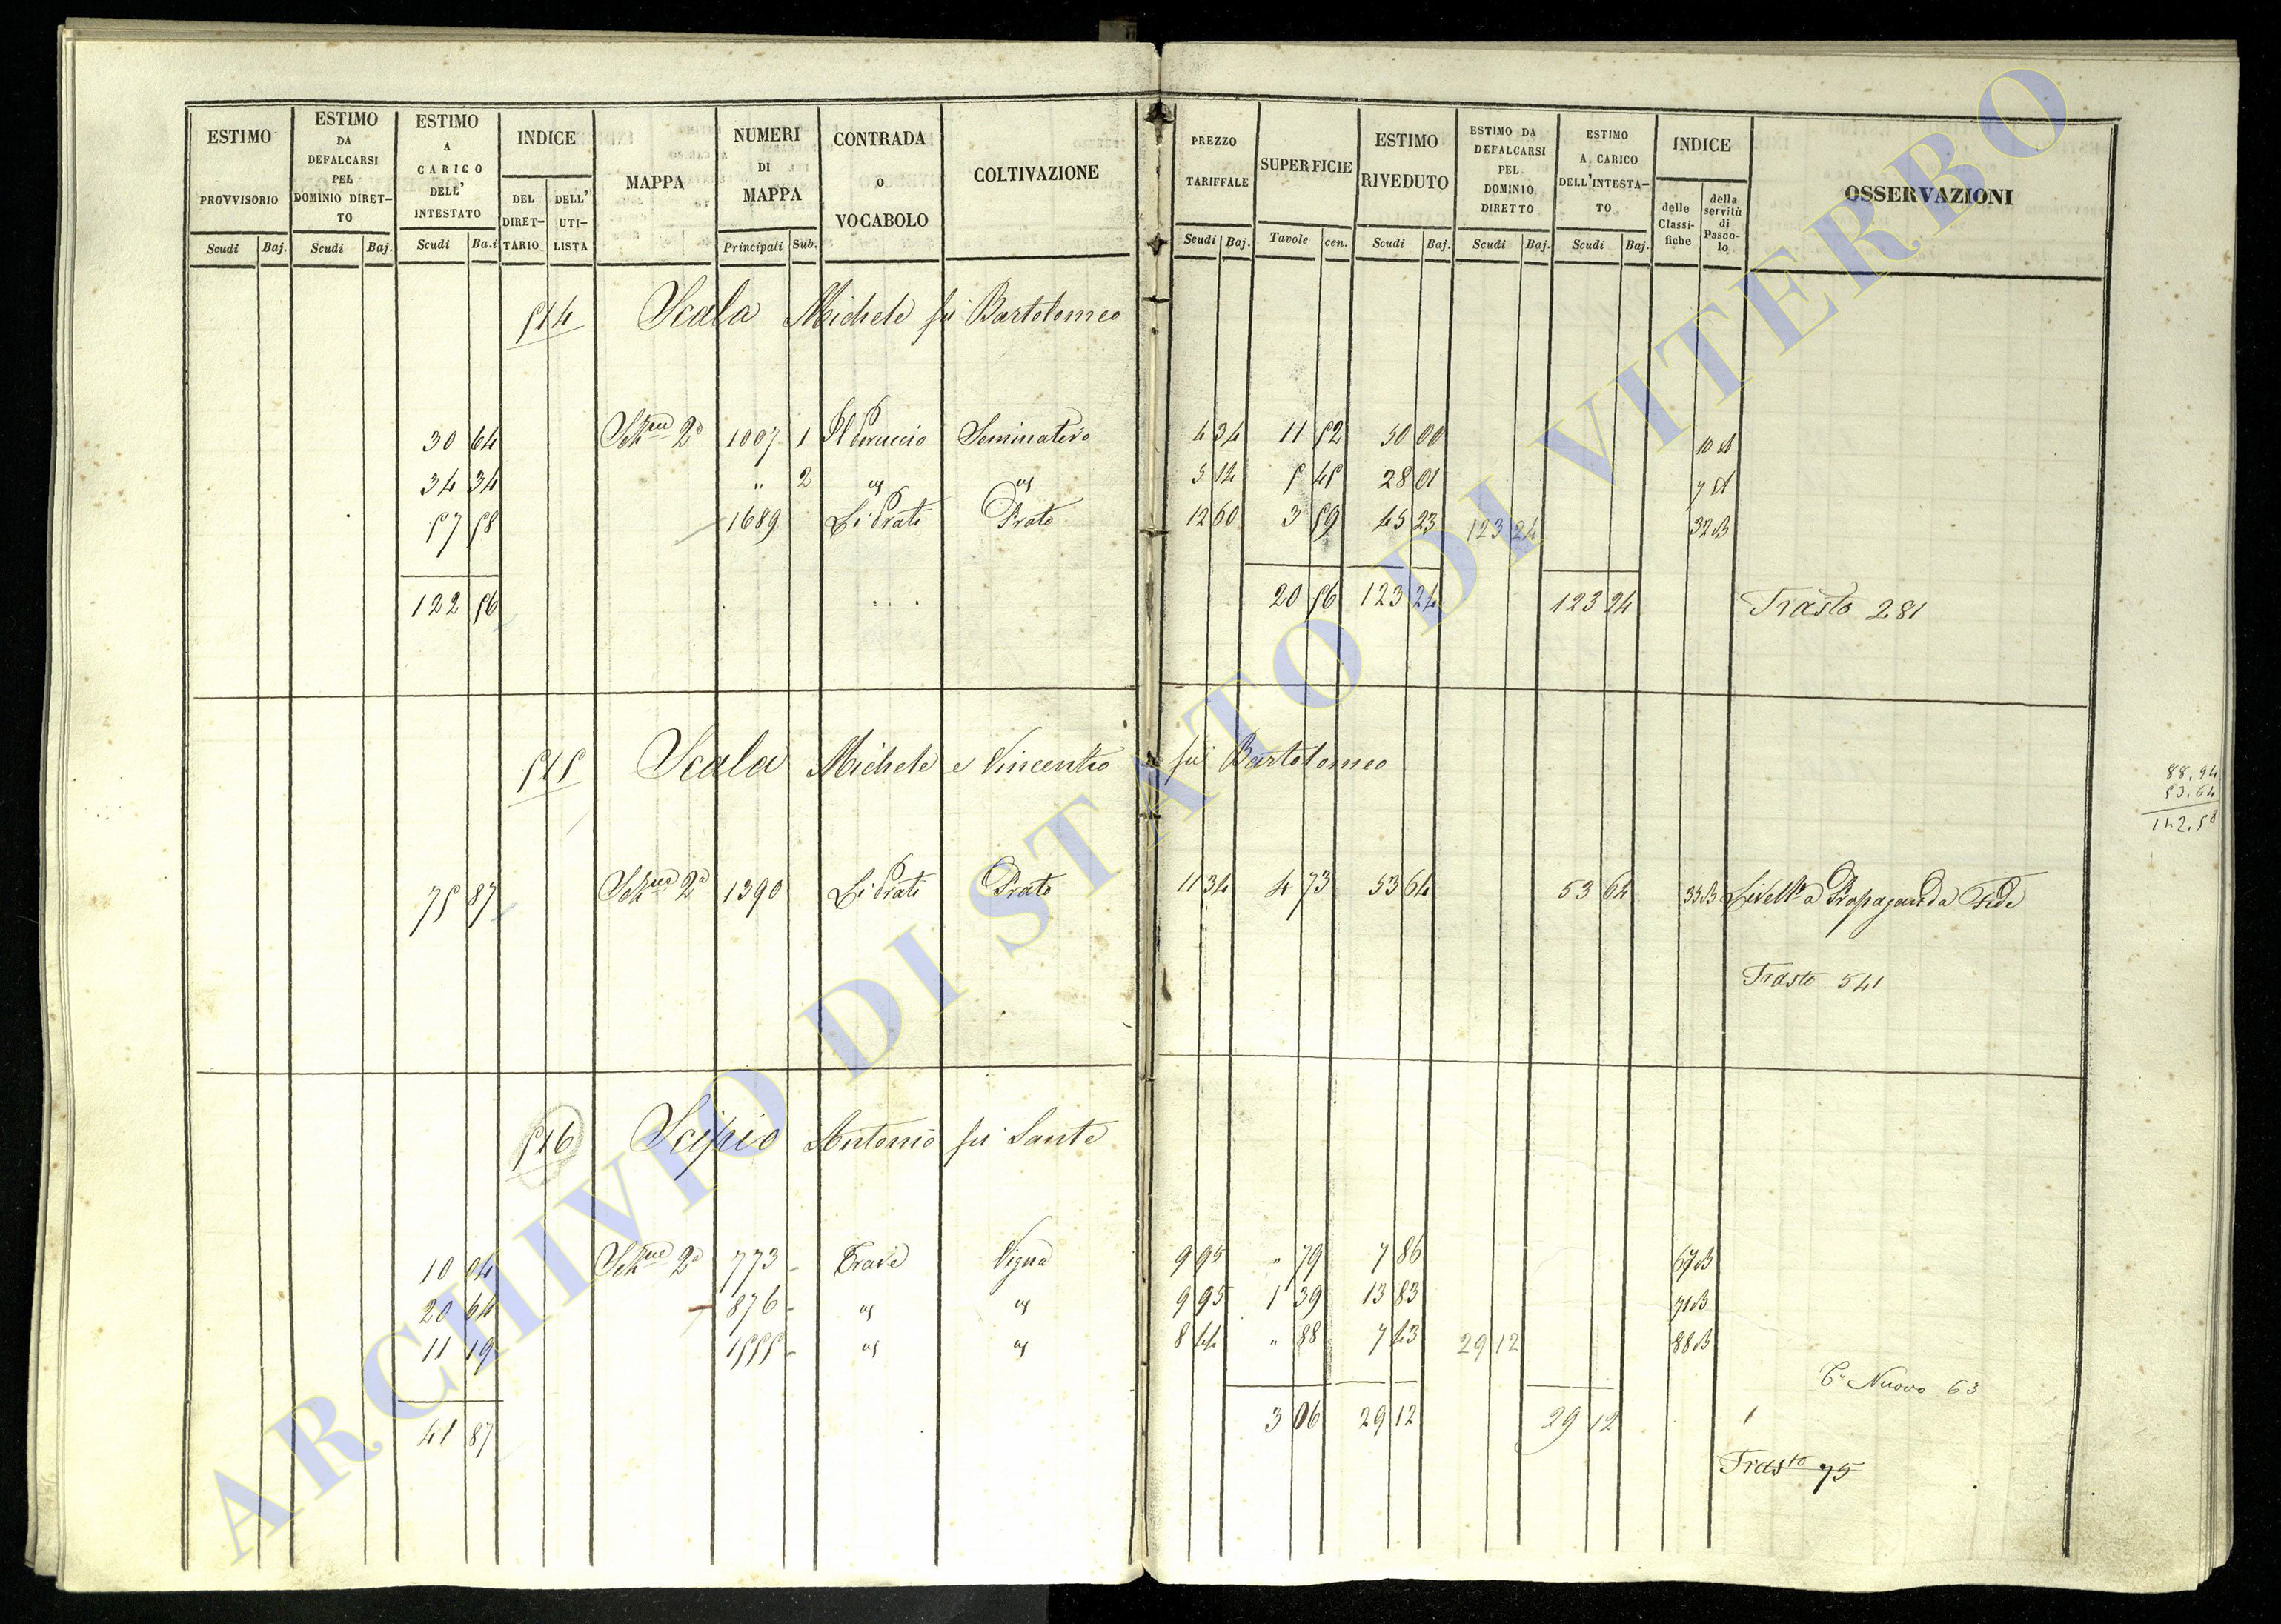 ESTIMO PROVVISORIO Scudi Baj.
ESTIMO DA DEFALCARSI PEL DOMINIO DIRET- TO Scudi Baj.
ESTIMO A CARICO DELL' INTESTATO Scudi Ba.i
INDICE DEL DIRET- TARIO DELL' UTI- LISTA
MAPPA
NUMERI DI MAPPA Principali Sub.
CONTRADA O VOCABOLO
COLTIVAZIONE
PREZZO TARIFFALE Scudi Baj.
SUPERFICIE Tavole cen.
ESTIMO RIVEDUTO Scudi Baj.
ESTIMO DA DEFALCARSI PEL DOMINIO DIRETTO Scudi Baj.
ESTIMO A CARICO DELL'INTESTA- TO Scudi Baj.
INDICE delle Classi- fiche della servitù di Pasco- lo
OSSERVAZIONI
514 Scala Michele fu Bartolomeo
30 64 2a 1007 1 Seminativo 4 34 11 52 50 00
34 34 " 2 " " 5 14 5 45 28 01
57 58 1689 Li Prati Prato 12 60 3 59 45 23 123 24 32 B
122 56 20 56 123 24 123 24 Trasto 281
515 Scala Michele e Vincentio fu Bartolomeo
88.94
53.64
142.58
75 87 2a 1390 Li Prati Prato 11 34 4 73 53 64 53 64 33 B Livello a Propaganda Fide
Trasto 541
516 Scipio Antonio fu Sante
10 04 2a 773 Trave Vigna 9 95 " 79 7 86 67 B
20 64 876 " " 9 95 1 39 13 83 71 B
11 19 1555 " " 8 44 " 88 7 43 29 12 88 B
Nuovo 63
41 87 3 06 29 12 29 12
Trasto 75
ARCHIVIO DI STATO DI VITERBO